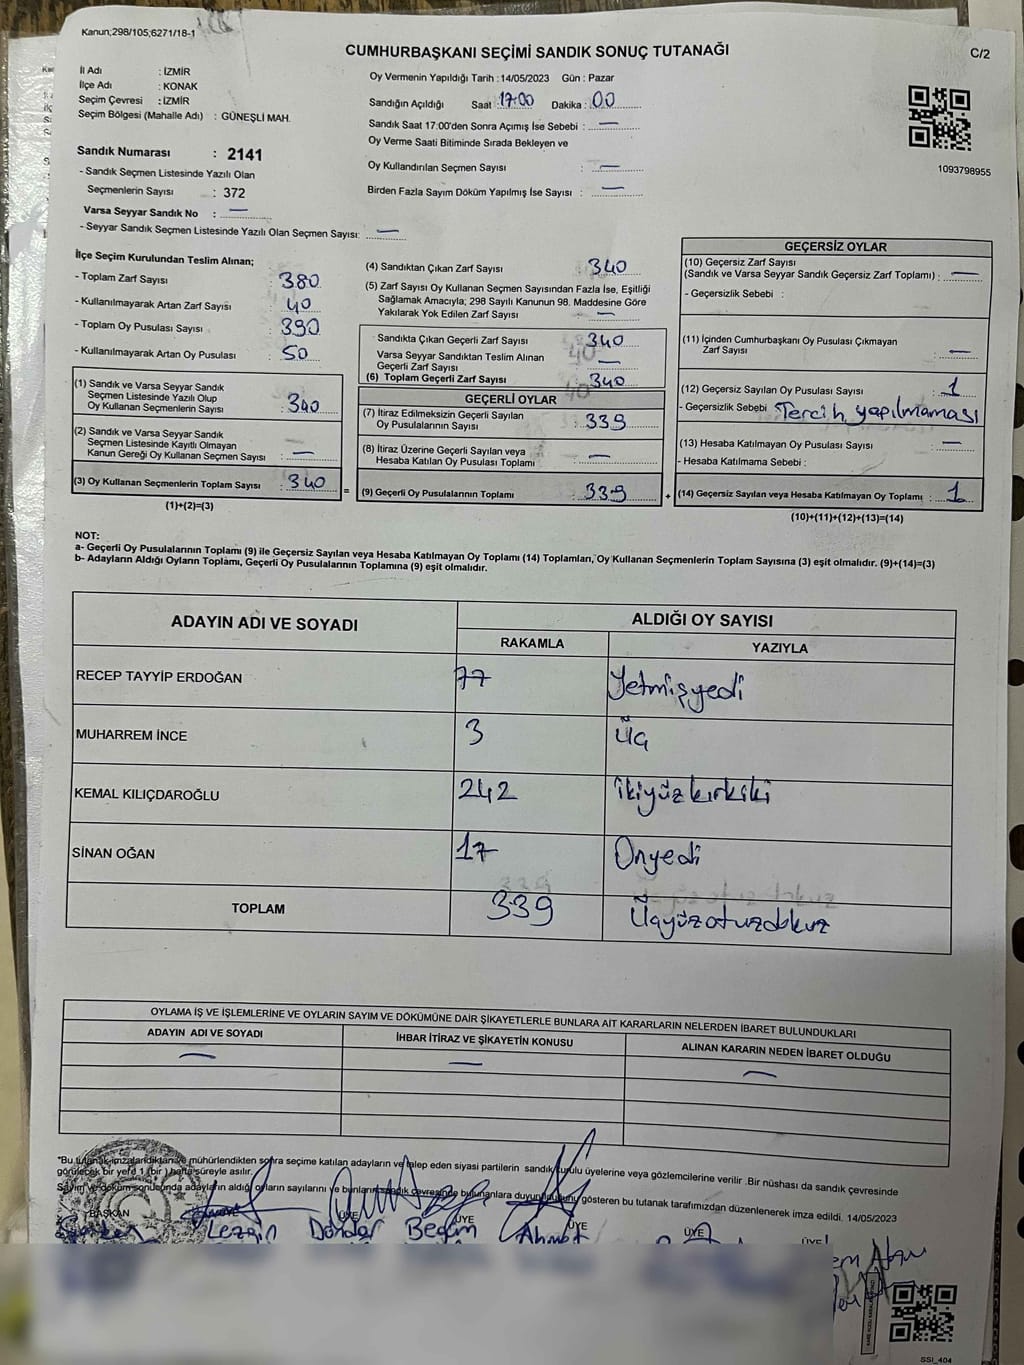 Kanun;298/105;6271/18-1
CUMHURBAŞKANI SEÇİMİ SANDIK SONUÇ TUTANAĞI
C/2
İl Adı : İZMİR
İlçe Adı : KONAK
Seçim Çevresi : İZMİR
Seçim Bölgesi (Mahalle Adı) : GÜNEŞLİ MAH.
Oy Vermenin Yapıldığı Tarih : 14/05/2023 Gün : Pazar
Sandığın Açıldığı Saat : 17:00 Dakika : 00
Sandık Saat 17:00'den Sonra Açımış İse Sebebi : —
Oy Verme Saati Bitiminde Sırada Bekleyen ve
Oy Kullandırılan Seçmen Sayısı : —
Birden Fazla Sayım Döküm Yapılmış İse Sayısı : —
1093798955
Sandık Numarası : 2141
- Sandık Seçmen Listesinde Yazılı Olan
Seçmenlerin Sayısı : 372
Varsa Seyyar Sandık No : —
- Seyyar Sandık Seçmen Listesinde Yazılı Olan Seçmen Sayısı: —
İlçe Seçim Kurulundan Teslim Alınan;
- Toplam Zarf Sayısı : 380
- Kullanılmayarak Artan Zarf Sayısı : 40
- Toplam Oy Pusulası Sayısı : 390
- Kullanılmayarak Artan Oy Pusulası : 50
(1) Sandık ve Varsa Seyyar Sandık
Seçmen Listesinde Yazılı Olup
Oy Kullanan Seçmenlerin Sayısı : 340
(2) Sandık ve Varsa Seyyar Sandık
Seçmen Listesinde Kayıtlı Olmayan
Kanun Gereği Oy Kullanan Seçmen Sayısı : —
(3) Oy Kullanan Seçmenlerin Toplam Sayısı : 340
(1)+(2)=(3)
(4) Sandıktan Çıkan Zarf Sayısı : 340
(5) Zarf Sayısı Oy Kullanan Seçmen Sayısından Fazla İse, Eşitliği
Sağlamak Amacıyla; 298 Sayılı Kanunun 98. Maddesine Göre
Yakılarak Yok Edilen Zarf Sayısı : —
Sandıkta Çıkan Geçerli Zarf Sayısı : 340
Varsa Seyyar Sandıktan Teslim Alınan
Geçerli Zarf Sayısı : —
(6) Toplam Geçerli Zarf Sayısı : 340
GEÇERLİ OYLAR
(7) İtiraz Edilmeksizin Geçerli Sayılan
Oy Pusulalarının Sayısı : 339
(8) İtiraz Üzerine Geçerli Sayılan veya
Hesaba Katılan Oy Pusulası Toplamı : —
= (9) Geçerli Oy Pusulalarının Toplamı : 339
GEÇERSİZ OYLAR
(10) Geçersiz Zarf Sayısı
(Sandık ve Varsa Seyyar Sandık Geçersiz Zarf Toplamı) : —
- Geçersizlik Sebebi :
(11) İçinden Cumhurbaşkanı Oy Pusulası Çıkmayan
Zarf Sayısı : —
(12) Geçersiz Sayılan Oy Pusulası Sayısı : 1
- Geçersizlik Sebebi Tercih yapılmaması
(13) Hesaba Katılmayan Oy Pusulası Sayısı : —
- Hesaba Katılmama Sebebi :
+ (14) Geçersiz Sayılan veya Hesaba Katılmayan Oy Toplamı : 1
(10)+(11)+(12)+(13)=(14)
NOT:
a- Geçerli Oy Pusulalarının Toplamı (9) ile Geçersiz Sayılan veya Hesaba Katılmayan Oy Toplamı (14) Toplamları, Oy Kullanan Seçmenlerin Toplam Sayısına (3) eşit olmalıdır. (9)+(14)=(3)
b- Adayların Aldığı Oyların Toplamı, Geçerli Oy Pusulalarının Toplamına (9) eşit olmalıdır.
ADAYIN ADI VE SOYADI
ALDIĞI OY SAYISI
RAKAMLA YAZIYLA
RECEP TAYYİP ERDOĞAN 77 Yetmişyedi
MUHARREM İNCE 3 Üç
KEMAL KILIÇDAROĞLU 242 ikiyüzkırkiki
SİNAN OĞAN 17 Onyedi
TOPLAM 339 Üçyüzotuzdokuz
OYLAMA İŞ VE İŞLEMLERİNE VE OYLARIN SAYIM VE DÖKÜMÜNE DAİR ŞİKAYETLERLE BUNLARA AİT KARARLARIN NELERDEN İBARET BULUNDUKLARI
ADAYIN ADI VE SOYADI İHBAR İTİRAZ VE ŞİKAYETİN KONUSU ALINAN KARARIN NEDEN İBARET OLDUĞU
— — —
*Bu tutanak imzalandıktan ve mühürlendikten sonra seçime katılan adayların ve talep eden siyasi partilerin sandık kurulu üyelerine veya gözlemcilerine verilir .Bir nüshası da sandık çevresinde
görülecek bir yere 1 ( bir ) hafta süreyle asılır.
Sayım ve döküm sonucunda adayların aldığı oyların sayılarını ve bunların sandık çevresinde bulunanlara duyurulduğunu gösteren bu tutanak tarafımızdan düzenlenerek imza edildi. 14/05/2023
BAŞKAN ÜYE ÜYE ÜYE ÜYE ÜYE
Lezgin Döndar Begüm Ahmet
SSI_404